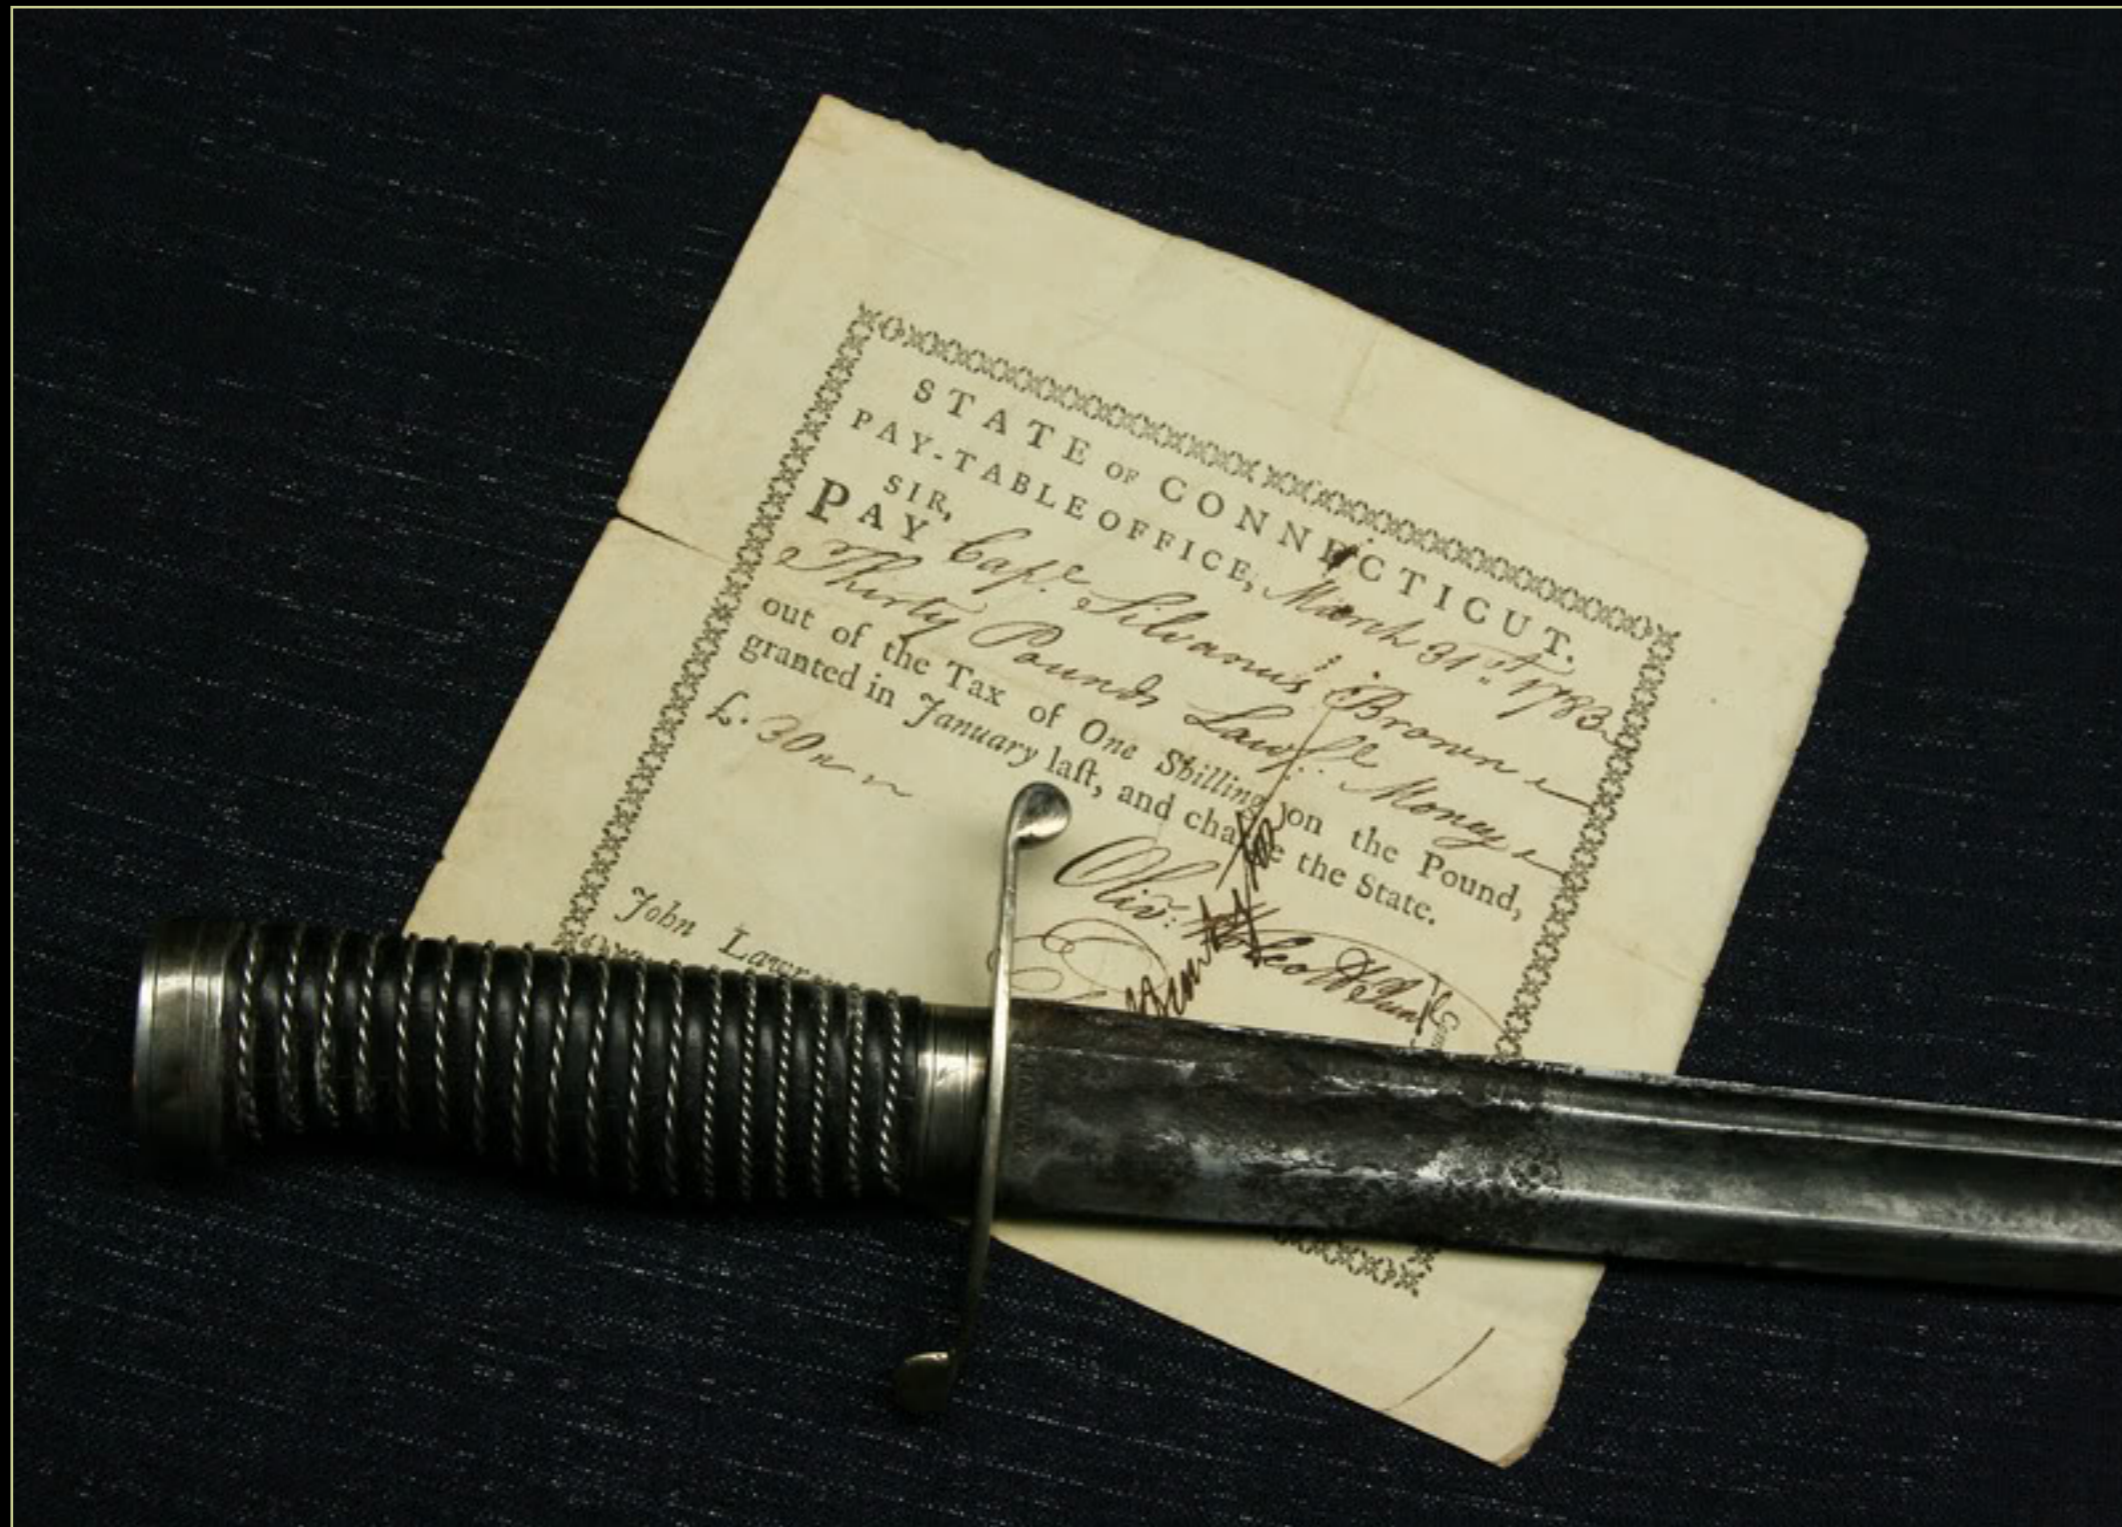 STATE OF CONNECTICUT.
PAY-TABLE OFFICE, March 31st 1783
SIR,
PAY Capt. Silvanus Brown
Thirty Pounds Lawfll. Money
out of the Tax of One Shilling on the Pound,
granted in January laſt, and charge the State.
£. 30
Oliv: Wolcott Junr
John Lawr